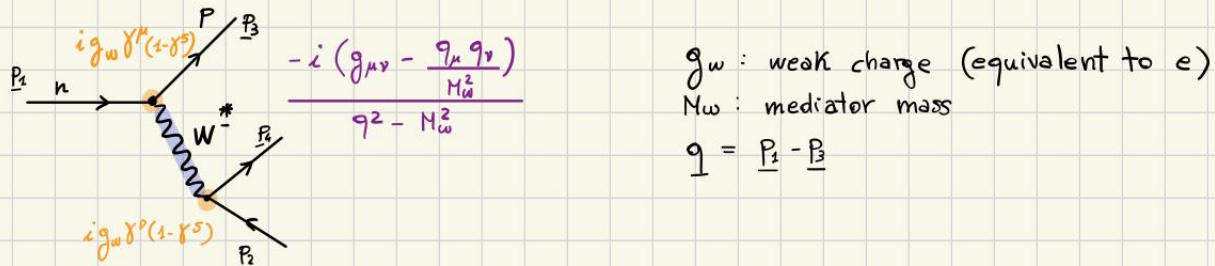 P P₃
i g_w γ^μ (1-γ⁵)
P₁ n
W⁻*
P₄
i g_w γ^ν (1-γ⁵)
P₂
-i (g_μν - q_μ q_ν / M_w²)
q² - M_w²
g_w : weak charge (equivalent to e)
M_w : mediator mass
q = P₁ - P₃